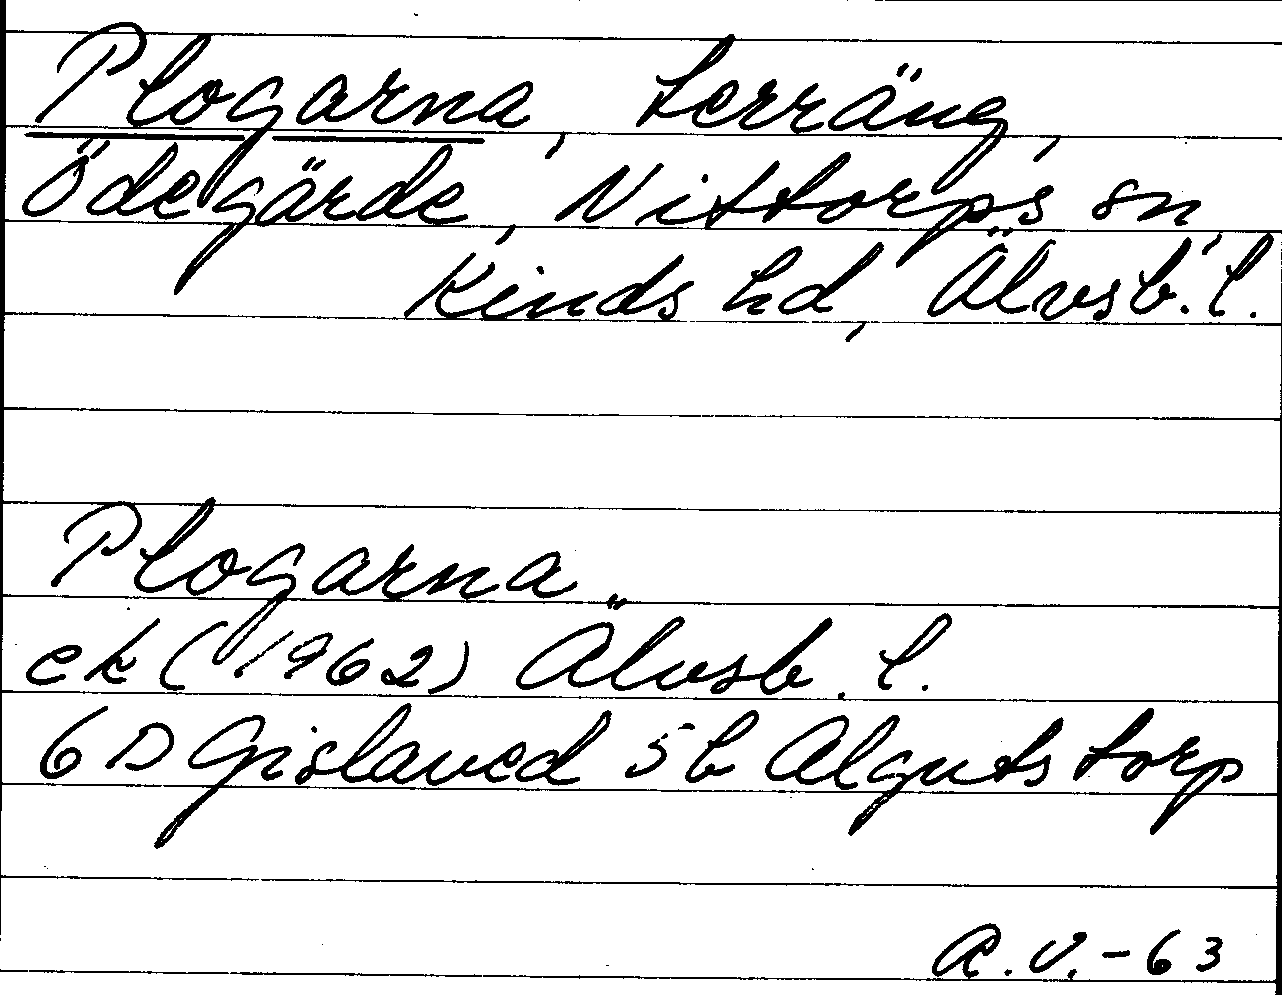 Plogarna, Terräng,
Ödegärde, Nittorps sn,
Kinds hd, Älvsb. l.
Plogarna
ek (1962) Älvsb. l.
6 D Gislaved 5 b Algutstorp
A.V.-63